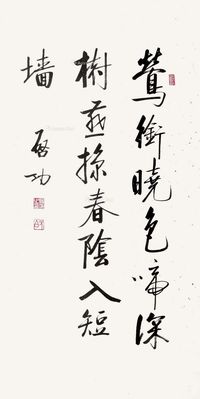 鶯銜曉色啼深
樹燕掠春陰入短
墙
啓功